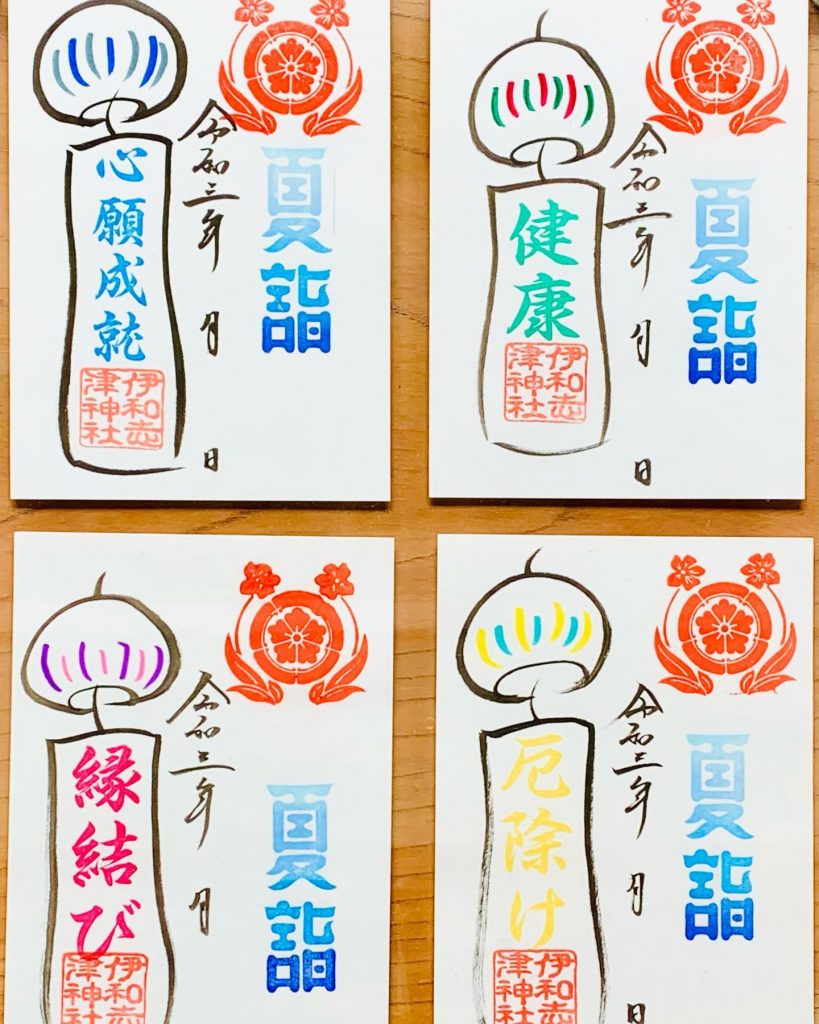 夏詣
令和三年 月 日
心願成就
伊和志津神社
夏詣
令和三年 月 日
健康
伊和志津神社
夏詣
令和三年 月
縁結び
伊和志津神社
夏詣
令和三年 月 日
厄除け
伊和志津神社